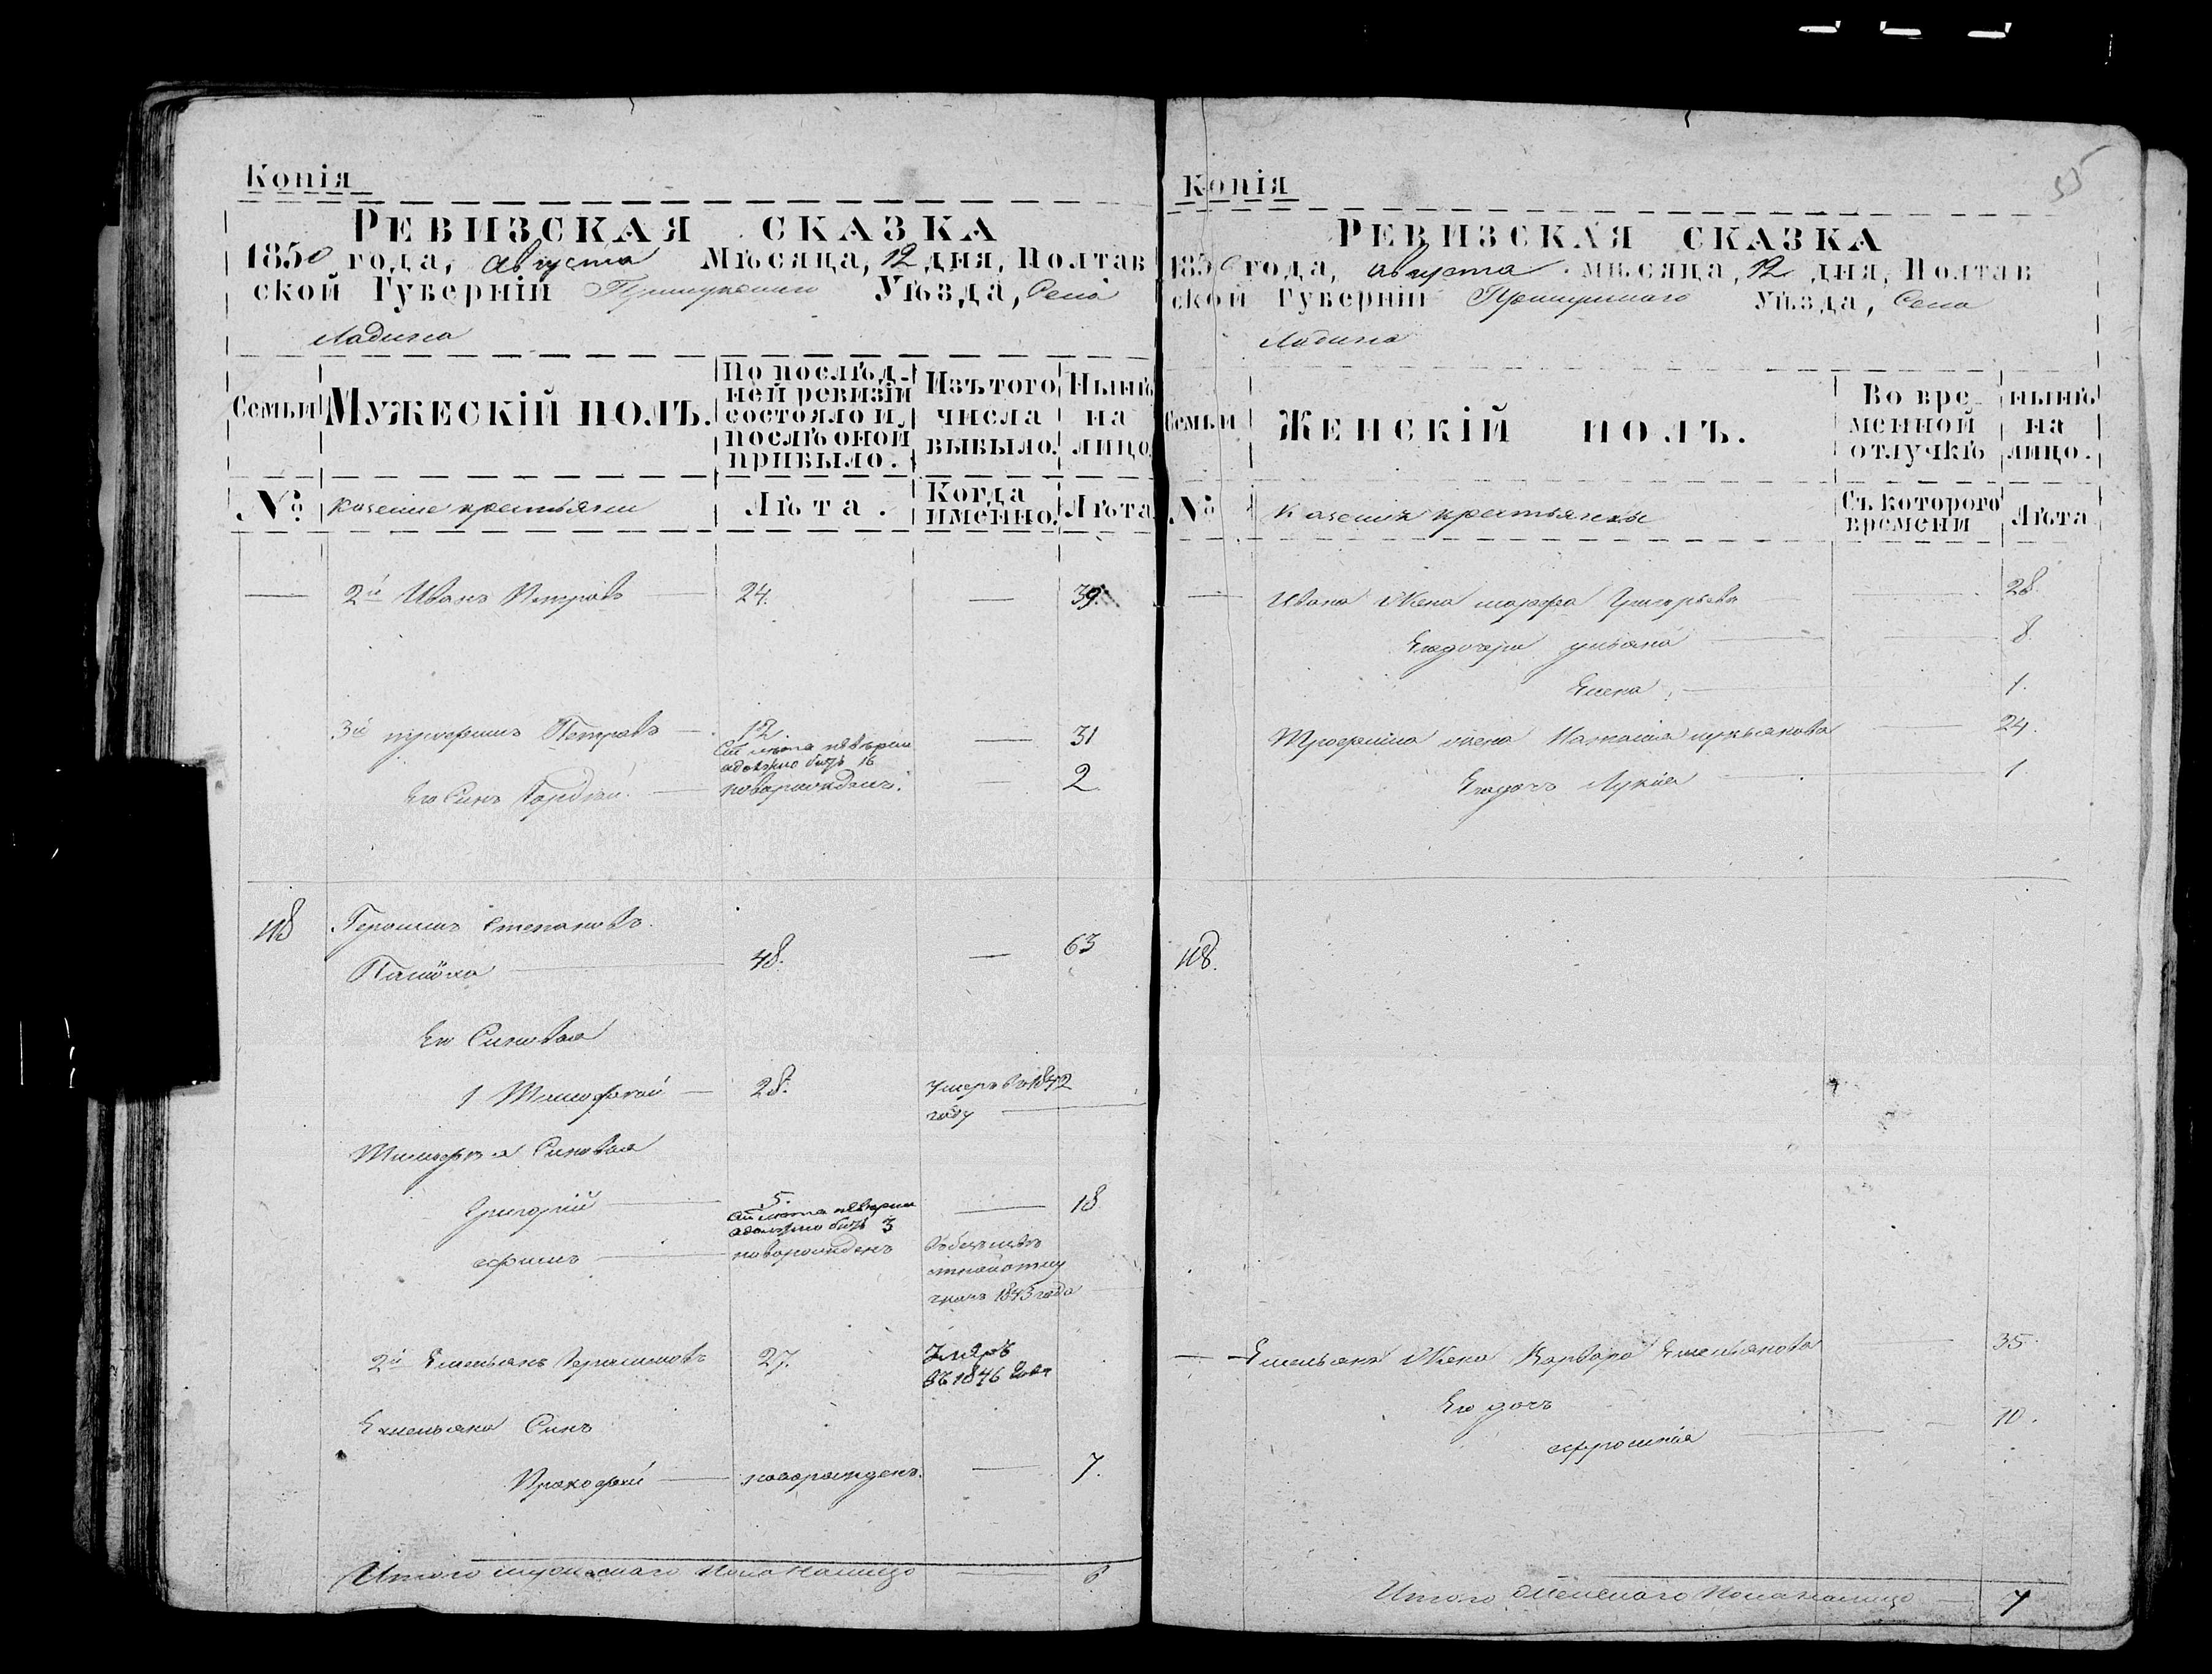 Копія
РЕВИЗСКАЯ СКАЗКА
1850 года, августа Мѣсяца, 12 дня, Полтав
ской Губерніи Прилуцкаго Уѣзда, Села
Ладина
Семьи
МУЖЕСКІЙ ПОЛЪ.
По послѣд-
ней ревизіи
состояло и
послѣ оной
прибыло.
Изъ того
числа
выбыло.
Нынѣ
на
лицо.
№
казенные крестьяни
Лѣта.
Когда
именно.
Лѣта
2й Иванъ Петровъ 24. — 39.
3й трофимъ Петровъ 12. — 31
лѣта невѣрни
адолжно бить 16
Его Синъ Гордѣй. новорожденъ. — 2.
118 Герасимъ Степановъ.
48. — 63
Его Синовья
1 Тимофѣй 28. умеръ въ 1842
году
Тимофѣя Синовья
Григорій 5. — 18
лѣта невѣрни
адолжно бить 3
ефимъ новорожденъ
1843 года
2й Емельянъ Герасимовъ 27. Умеръ
въ 1846 году
Емельяна Синъ
Прокофій новорожденъ. — 7.
Итого мужескаго пола налицо — 6
55
Копія
РЕВИЗСКАЯ СКАЗКА
1850 года, августа мѣсяца, 12 дня, Полтав
ской Губерніи Прилуцкаго Уѣзда, Села
Ладина
Семьи
ЖЕНСКІЙ ПОЛЪ.
Во вре-
менной
отлучкѣ
нынѣ
на
лицо.
№
казенни крестьянки
Съ которого
времени
Лѣта
Ивана Жена марфа Григорьева 28.
Его дочери ульяна 8.
Елена 1.
Трофима жена Наталія лукьянова 24.
Его дочъ Лукія 1.
118.
Емельяна Жена Варвара Емельянова 35.
Его дочъ
ефросинія 10.
Итого Женскаго пола налицо — 7